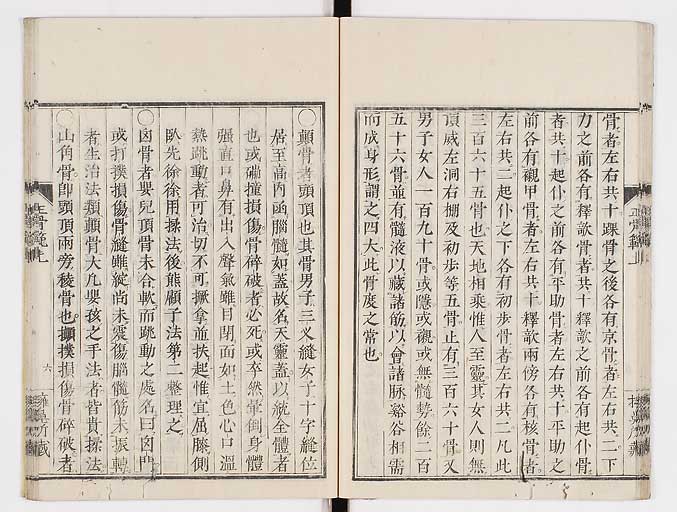 骨者左右共十踝骨之後各有京骨者左右共二下
力之前各有釋欹骨者共十釋欹之前各有起仆骨
者共十起仆之前各有平助骨者左右共十平助之
前各有襯甲骨者左右共十釋欹兩傍各有核骨者
左右共二起仆之下各有初步骨者左右共二凡此
三百六十五骨也天地相乘惟人至靈其女人則無
頂威左洞右棚及初步等五骨止有三百六十骨又
男子女人一百九十骨或隱或襯或無髓勢餘二百
五十六骨並有髓液以藏諸筋以會諸脉谿谷相需
而成身形謂之四大此骨度之常也
正骨範上
○顛骨者頭頂也其骨男子三乂縫女子十字縫位
居至高內函腦髓如蓋故名天靈蓋以統全體者
也或磕撞損傷骨碎破者必死或卒然暈倒身體
強直口鼻有出入聲氣雖目閉面如土色心口溫
熱跳動者可治切不可撅拿並扶起惟宜屈膝側
臥先徐徐用揉法後熊顧子法第二整理之
○囟骨者嬰兒頂骨未合軟而跳動之處名曰囟門
或打撲損傷骨縫雖綻尚未震傷腦髓筋未振轉
者生治法類顛骨大凡嬰孩之手法者皆貴揉法
○山角骨卽頭頂兩旁稜骨也擷撲損傷骨碎破者
正骨範上
六